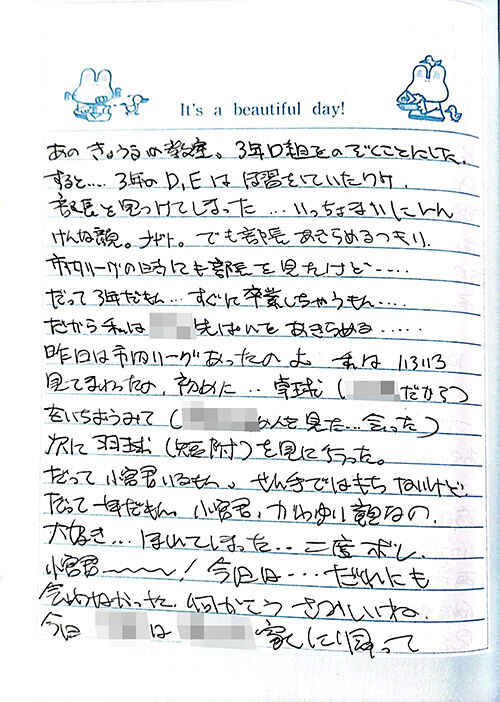 It's a beautiful day!
あの きょうるの教室。3年D組をのぞくことにした。
すると.... 3年のD,Eは ほ習をしていたワケ.
部長を見つけてしまった....いっちょまえにしん
けんな顔。ナイト。でも部長あきらめるつもり.
市内リーグの時にも部長を見たけど-----
だって3年だもん...すぐに卒業しちゃうもん....
だから私は 先ぱいをあきらめる.....
昨日は市内リーグあったのよ 私は いろいろ
見てまわったの、初めに.. 卓球( だから)
をいちおうみて( の人を見た...会った)
次に羽球(短附)を見に行った。
だって小宮君いるもん、せん手ではもちないけど
だって 一年だもん。小宮君、かわゆい顔なの.
大好き... ほれてしまった.. 二度ボレ.
小宮君〜〜〜! 今日は... だれにも
会わなかった. 何かこう さみしいね.
今日 は 家に帰って